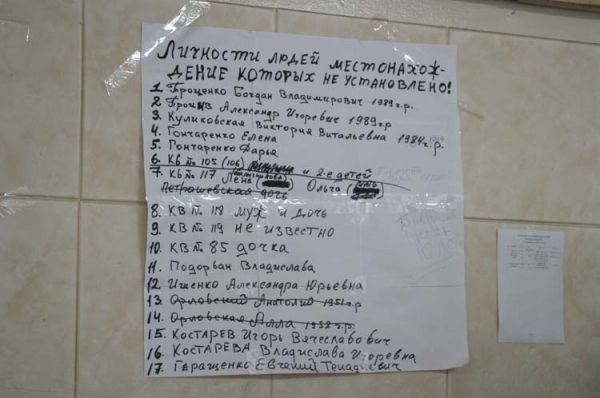 Личности людей местонахож-
дение которых не установлено!
1. Проценко Богдан Владимирович 1989г.р.
2. Александр Игоревич 1989г.р
3. Куликовская Виктория Витальевна 1984г.р.
4. Гончаренко Елена
5. Гончаренко Дарья
6. Кв № 105 (106) и 2-е детей
7. Кв № 117 Лена Ольга
Петрашевская дочь
8. Кв № 118 муж и дочь
9. Кв № 119 не известно
10. Кв № 85 дочка
11. Подорван Владислава
12 Ищенко Александра Юрьевна
13. Орловский Анатолий 1951г.р
14. Орловская Алла 1952г.р.
15. Костарев Игорь Вячеславович
16. Костарева Владислава Игоревна
17. Геращенко Евгений